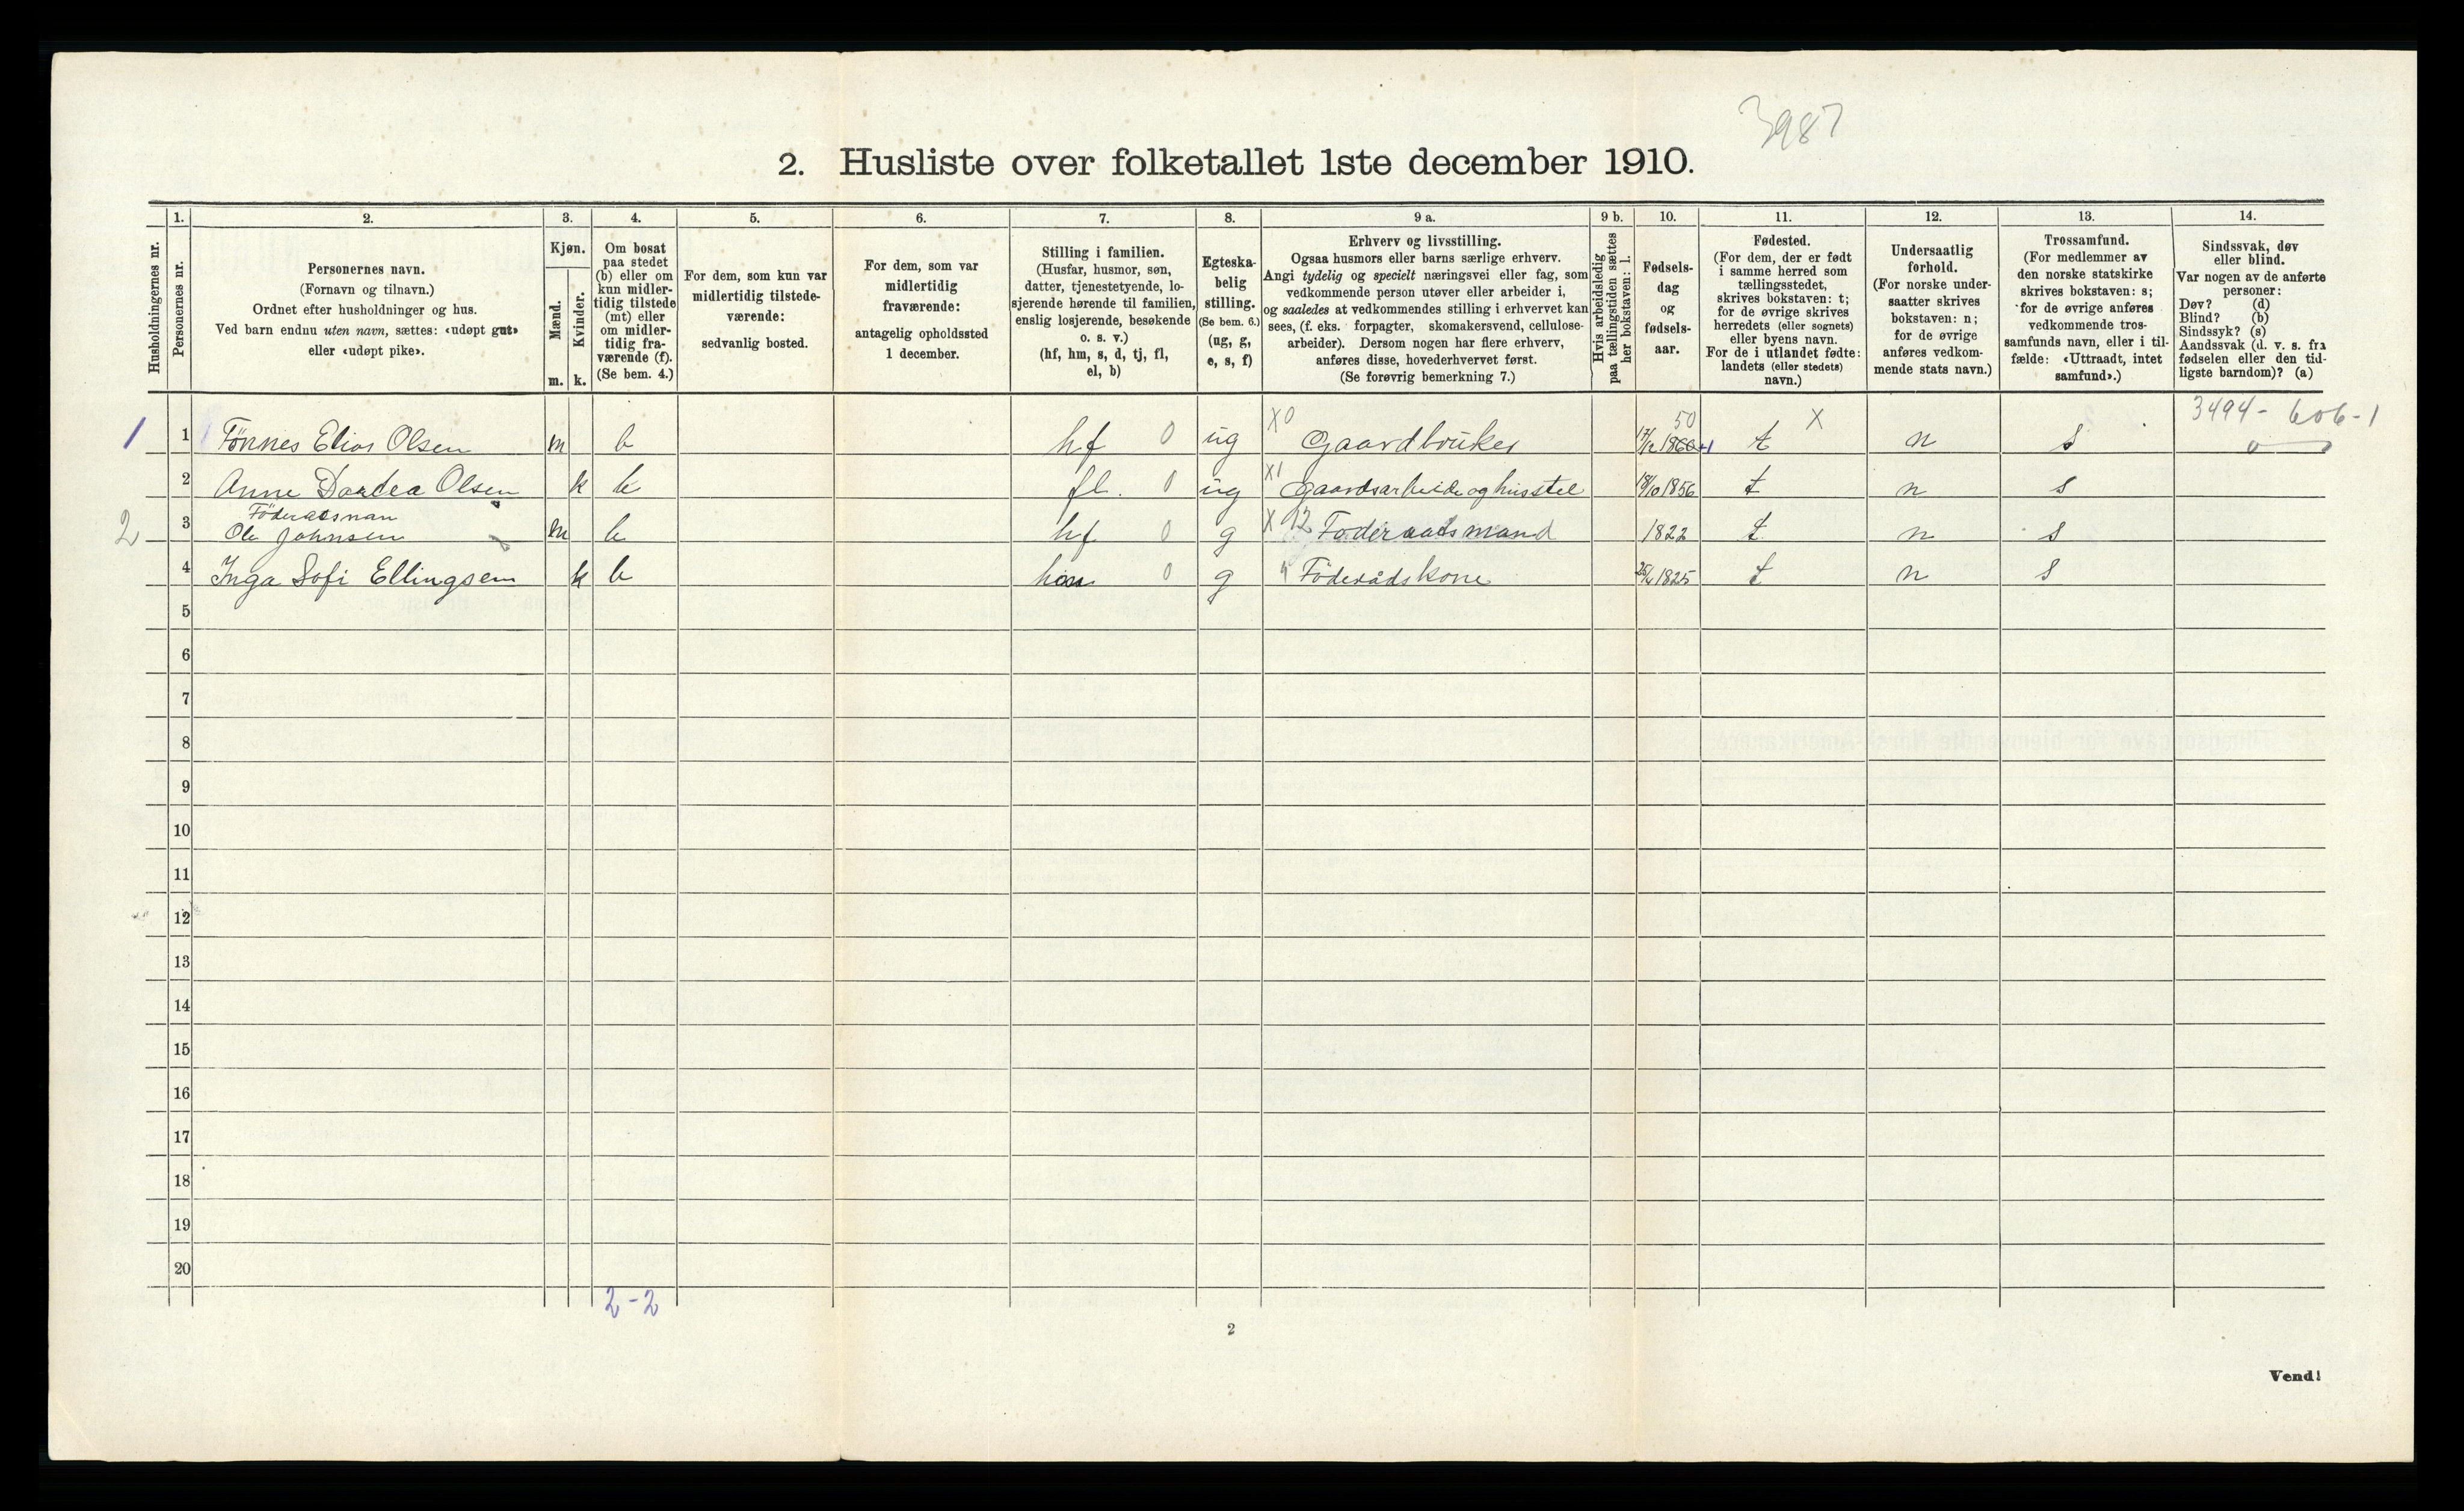 3987
2. Husliste over folketallet 1ste december 1910.
Husholdningernes nr.
1.
Personernes nr.
2.
Personernes navn.
(Fornavn og tilnavn.)
Ordnet efter husholdninger og hus.
Ved barn endnu uten navn, sættes: «udøpt gut»
eller «udøpt pike».
3.
Kjøn.
Mænd.
Kvinder.
m. k.
4.
Om bosat
paa stedet
(b) eller om
kun midler-
tidig tilstede
(mt) eller
om midler-
tidig fra-
værende (f).
(Se bem. 4.)
5.
For dem, som kun var
midlertidig tilstede-
værende:
sedvanlig bosted.
6.
For dem, som var
midlertidig
fraværende:
antagelig opholdssted
1 december.
7.
Stilling i familien.
(Husfar, husmor, søn,
datter, tjenestetyende, lo-
sjerende hørende til familien,
enslig losjerende, besøkende
o. s. v.)
(hf, hm, s, d, tj, fl,
el, b)
8.
Egteska-
belig
stilling.
(Se bem. 6.)
(ug, g,
e, s, f)
9 a.
Erhverv og livsstilling.
Ogsaa husmors eller barns særlige erhverv.
Angi tydelig og specielt næringsvei eller fag, som
vedkommende person utøver eller arbeider i,
og saaledes at vedkommendes stilling i erhvervet kan
sees, (f. eks. forpagter, skomakersvend, cellulose-
arbeider). Dersom nogen har flere erhverv,
anføres disse, hovederhvervet først.
(Se forøvrig bemerkning 7.)
9 b.
Hvis arbeidsledig
paa tællingstiden sættes
her bokstaven: l.
10.
Fødsels-
dag
og
fødsels-
aar.
11.
Fødested.
(For dem, der er født
i samme herred som
tællingsstedet,
skrives bokstaven: t;
for de øvrige skrives
herredets (eller sognets)
eller byens navn.
For de i utlandet fødte:
landets (eller stedets)
navn.)
12.
Undersaatlig
forhold.
(For norske under-
saatter skrives
bokstaven: n;
for de øvrige
anføres vedkom-
mende stats navn.)
13.
Trossamfund.
(For medlemmer av
den norske statskirke
skrives bokstaven: s;
for de øvrige anføres
vedkommende tros-
samfunds navn, eller i til-
fælde: «Uttraadt, intet
samfund».)
14.
Sindssvak, døv
eller blind.
Var nogen av de anførte
personer:
Døv? (d)
Blind? (b)
Sindssyk? (s)
Aandssvak (d. v. s. fra
fødselen eller den tid-
ligste barndom)? (a)
3494 - 606-1
1 1 Tönnes Elias Olsen m b hf 0 ug X0 Gaardbruker 17/12 1860 50 t X n s 0
2 Anne Dordea Olsen k b fl. 0 ug X1 Gaardsarbeide og husstel 18/10 1856 t n s
Föderadsman
2 3 Ole Johnsen m b hf 0 g X 12 Foderaadsmand 1822 t n s
4 Inga Sofi Ellingsen k b hm 0 g " Föderådskone 25/4 1825 t n s
5
6
7
8
9
10
11
12
13
14
15
16
17
18
19
20
2-2
2
Vend!